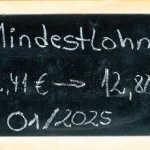 Mindestlohn
,41 € → 12,82
01/2025